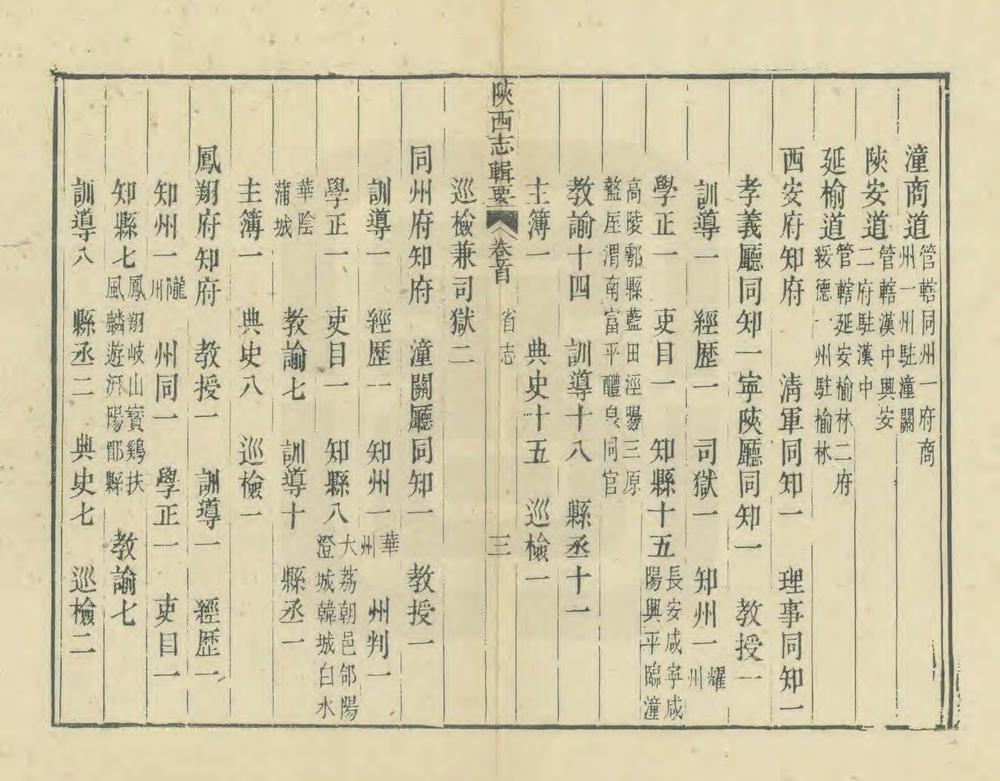 潼商道管轄同州一府商州一州駐潼關
陝安道管轄漢中興安二府駐漢中
延榆道管轄延安榆林二府綏德一州駐榆林
西安府知府　清軍同知一　理事同知一
孝義廳同知一寧陝廳同知一　教授一
訓導一　經歷一　司獄一　知州一耀州
學正一　吏目一　知縣十五長安咸寧咸陽興平臨潼
高陵鄠縣藍田涇陽三原盩厔渭南富平醴泉同官
教諭十四　訓導十八　縣丞十一
主簿一　典史十五　巡檢一
巡檢兼司獄二
陝西志輯要　卷首　省志　三
同州府知府　潼關廳同知一　教授一
訓導一　經歷一　知州一華州　州判一
學正一　吏目一　知縣八大荔朝邑郃陽澄城韓城白水
華陰蒲城　教諭七　訓導十　縣丞一
主簿一　典史八　巡檢一
鳳翔府知府　教授一　訓導一　經歷一
知州一隴州　州同一　學正一　吏目一
知縣七鳳翔岐山寶鷄扶風麟遊汧陽郿縣　教諭七
訓導八　縣丞二　典史七　巡檢二